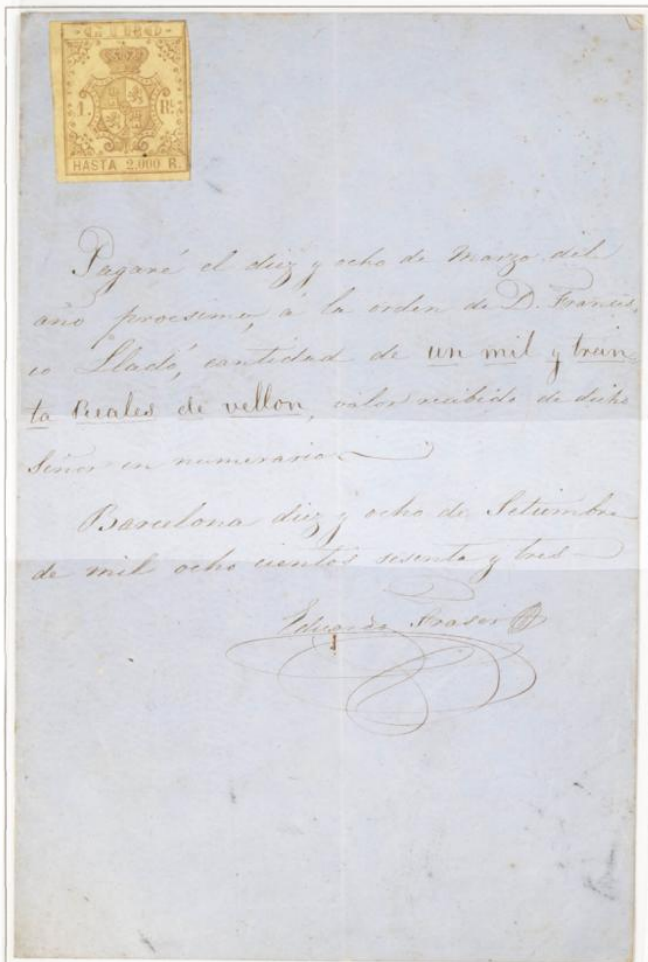 GIRO
1. Rl.
HASTA 2.000 R.
Pagaré el diez y ocho de Marzo del
año procsimo, á la orden de D. Francis
co Lladó, cantidad de un mil y trein
ta Reales de vellon, valor recibido de dicho
Señor en numerario
Barcelona diez y ocho de Setiembre
de mil ocho cientos sesenta y tres
Eduardo